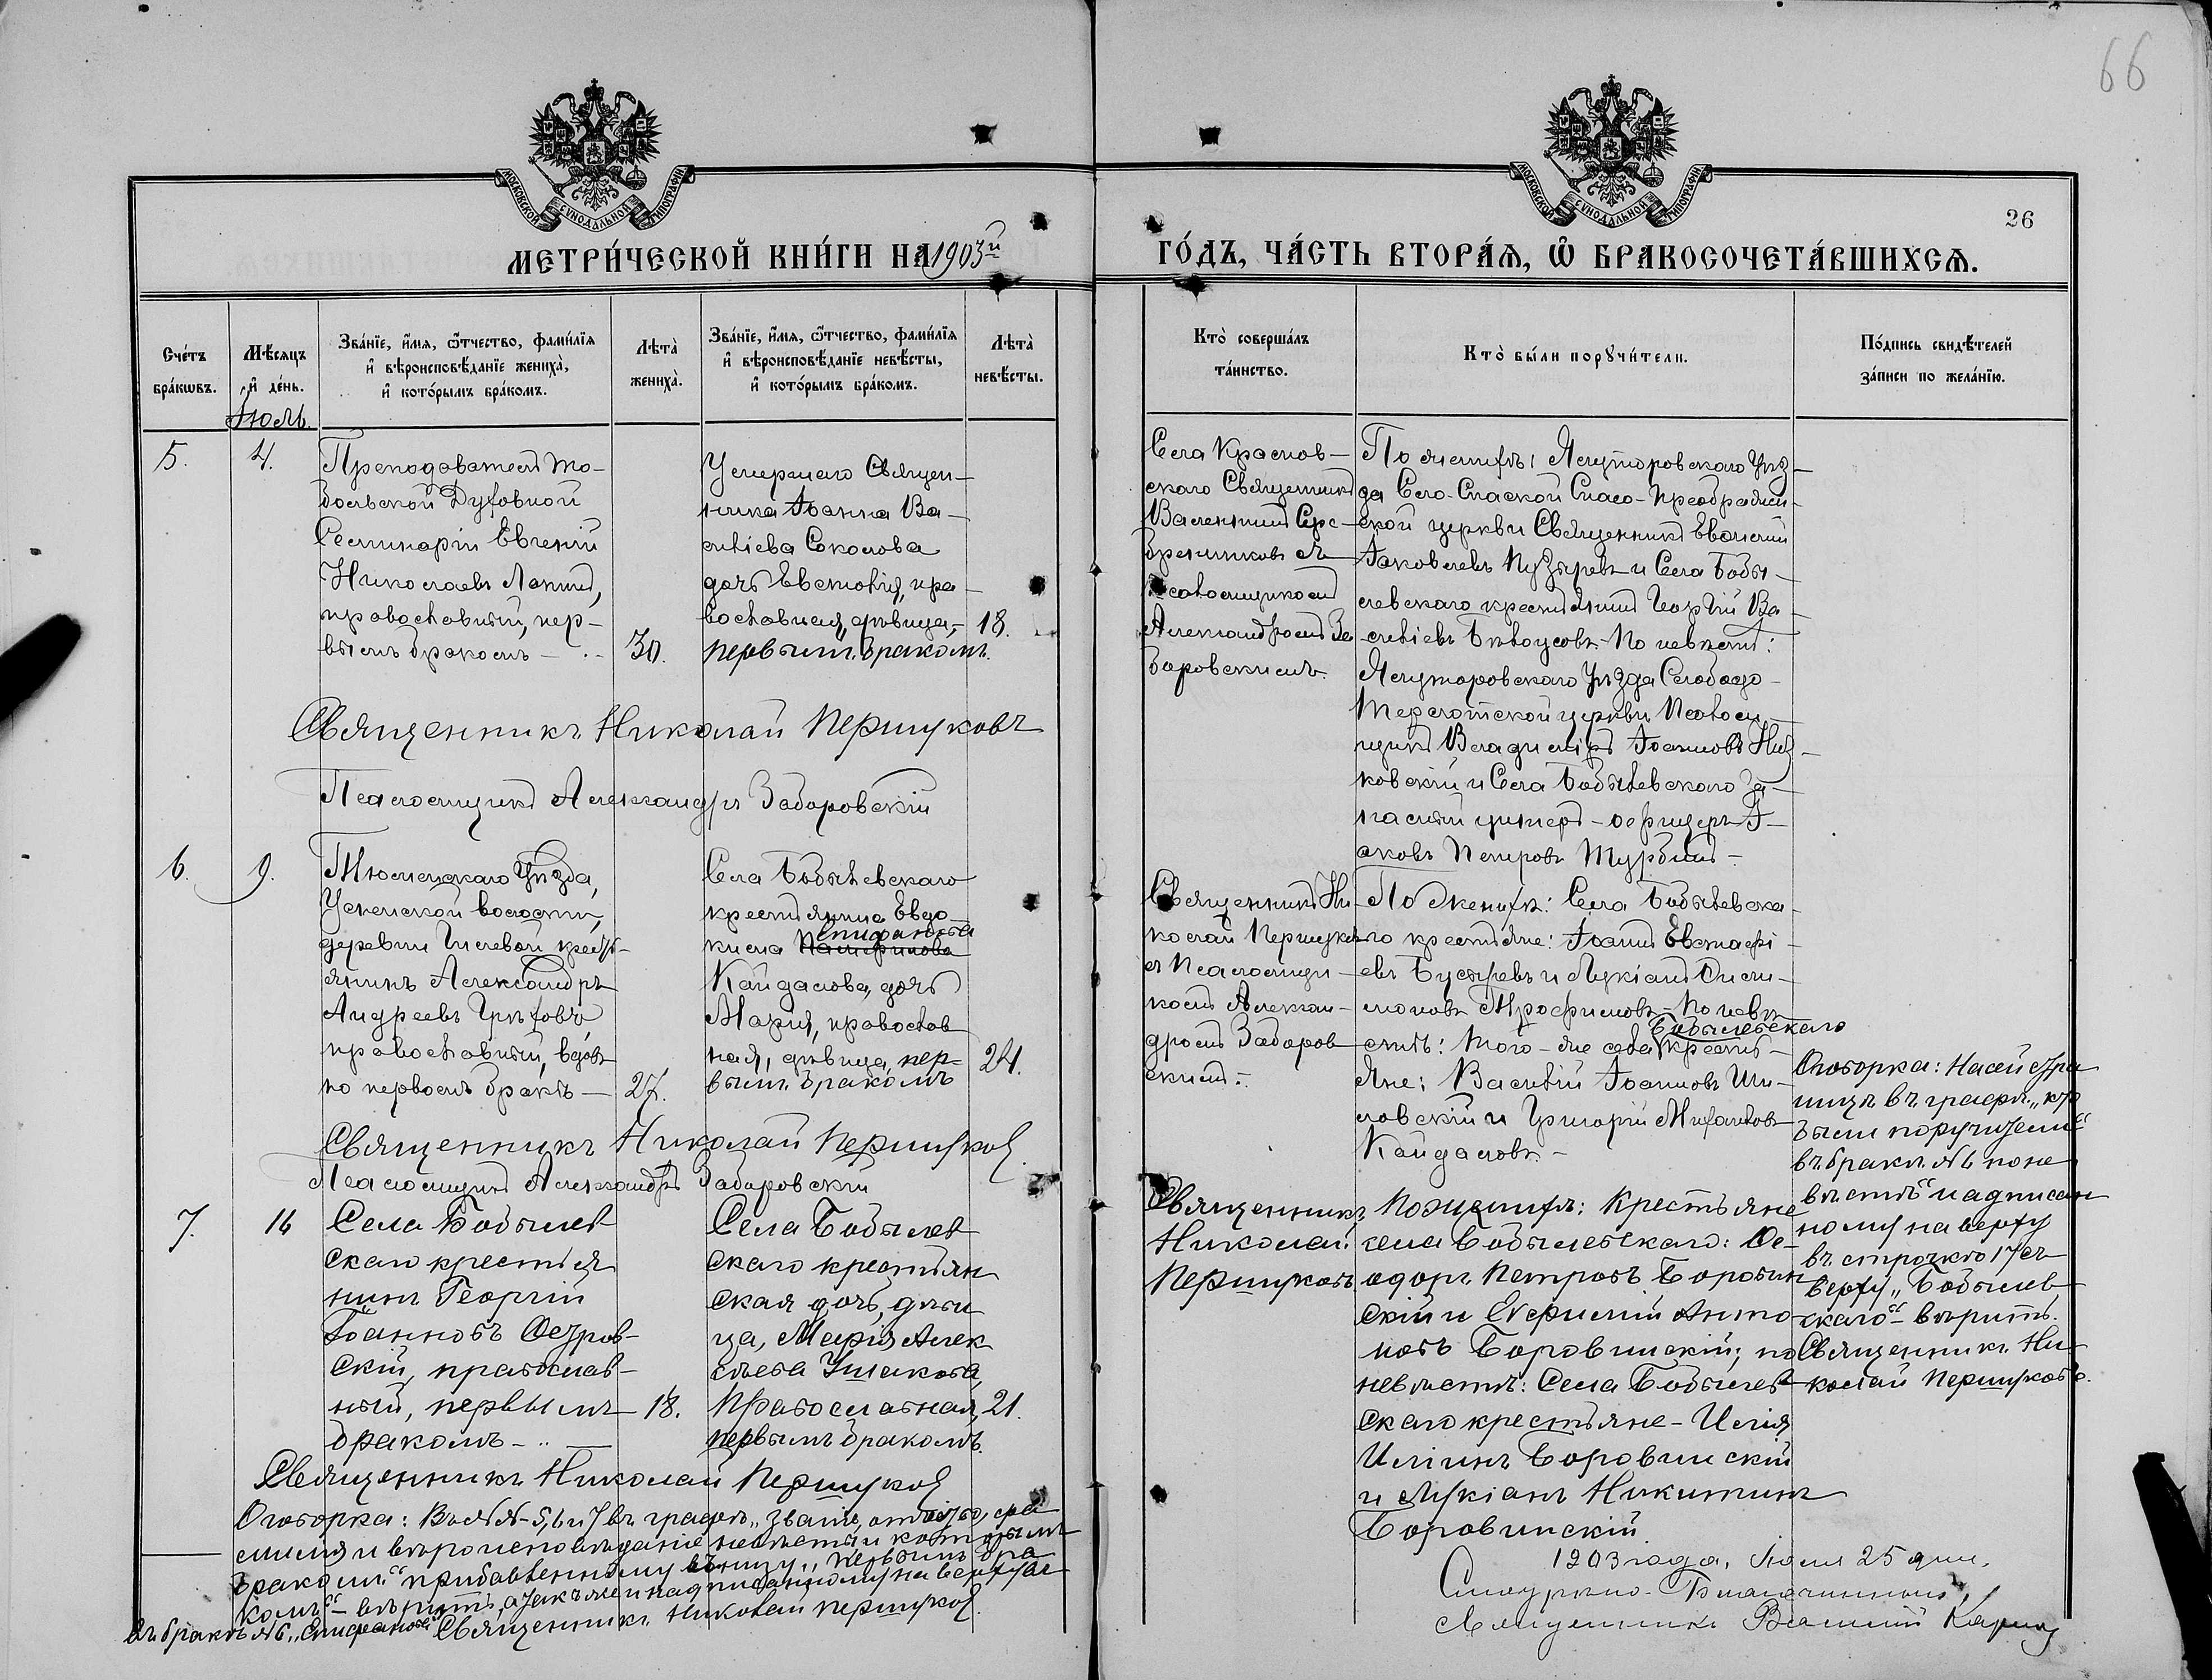 66
МОСКОВСКОЙ СѴНОДАЛЬНОЙ ТИПОГРАФІИ
МОСКОВСКОЙ СѴНОДАЛЬНОЙ ТИПОГРАФІИ
26
МЕТРИ́ЧЕСКОЙ КНИ́ГИ НА 1903й
ГО́ДЪ, ЧА́СТЬ ВТОРА́Ѧ, Ѡ҆ БРАКОСОЧЕТА́ВШИХСѦ.
Сче́тъ
бра́кѡвъ.
Мѣ́сяцъ
и҆ де́нь.
Зва́нїе, и҆́мѧ, ѻ҆́тчество, фами́лїѧ
и҆ вѣроисповѣ́данїе жениха̀,
и҆ кото́рымъ бра́комъ.
Лѣта̀
жениха̀.
Зва́нїе, и҆́мѧ, ѻ҆́тчество, фами́лїѧ
и҆ вѣроисповѣ́данїе невѣ́сты,
и҆ кото́рымъ бра́комъ.
Лѣта̀
невѣ́сты.
Кто̀ соверша́лъ
та́инство.
Кто̀ бы́ли порꙋчи́тели.
По́дпись свидѣ́телей
за́писи по жела́нїю.
Іюль.
5.
4.
Преподаватель То-
больской Духовной
Семинаріи Евгеній
Николаевъ Лапинъ,
православный, пер-
вымъ бракомъ
30.
Умершаго Священ-
ника Іоанна Ва-
сильева Соколова
дочь Евстолія, пра-
вославная, дѣвица,
первымъ бракомъ.
18.
Села Краснов-
скаго Священникъ
Валентинъ Сере-
бренниковъ съ
псаломщикомъ
Александромъ За-
боровскимъ.
По женихѣ: Ялуторовскаго Уѣз-
да Село-Спаской Спасо-Преображен-
ской церкви Священникъ Евгеній
Іаковлевъ Пузыревъ и Села Бобы-
левскаго крестьянинъ Георгій Ва-
сильевъ Бѣлоусовъ. По невѣстѣ:
Ялуторовскаго Уѣзда Слободо-
церкви Псалом-
щикъ Владиміръ Іоанновъ
и Села Бобылевскаго За-
пасный унтеръ-офицеръ І-
аковъ Петровъ Турбинъ.
Священникъ Николай Першуковъ
Псаломщикъ Александръ Заборовскій
6.
9.
Тюменскаго Уѣзда,
Успенской волости,
деревни кресть-
янинъ Александръ
Андреевъ
православный, вдовъ
по первомъ бракѣ
27.
Села Бобылевскаго
крестьянина Евдо-
Епифанова
кима
Кайдалова, дочь
Марія, православ
ная, дѣвица, пер-
вымъ бракомъ
24.
Священникъ Ни-
колай Першуковъ
съ Псаломщи-
комъ Алексан-
дромъ Заборов-
скимъ.
По женихѣ: Села Бобылевска-
го крестьяне: Іоаннъ Евстафі-
евъ и Лукіанъ
Трофимовъ. По невѣ-
Бобылевскаго
стѣ: того-же села крестья-
яне: Василій Іоанновъ Ши-
ловскій и Григорій Михайловъ
Кайдаловъ.
Оговорка: На сей стра
ницѣ въ графѣ „кто
были поручители“
въ бракѣ № 6 по не
вѣстѣ надписан
ному на верху
въ строкѣ 17 съ
верху „Бобылев
скаго“ – вѣрить.
Священникъ Ни-
колай Першуковъ.
Священникъ Николай Першуковъ
Псаломщикъ Александръ Заборовскій
7.
16
Села Бобылев
скаго крестья
нинъ Георгій
Іоанновъ Остров-
скій, православ-
ный, первымъ
бракомъ
18.
Села Бобылев
скаго крестьян
ская дочь, дѣви
ца, Марія Алек
сѣева Ушакова,
православная,
первымъ бракомъ.
21.
Священникъ
Николай
Першуковъ.
По женихѣ: Крестьяне
села Бобылевскаго: Ѳе-
одоръ Петровъ Боровин
скій и Евфимій Анто-
новъ Боровинскій; по
невѣстѣ: Села Бобылев
скаго крестьяне – Илія
Иліинъ Боровинскій
и Лукіанъ Никитинъ
Боровинскій
Священникъ Николай Першуковъ
Оговорка: Въ №№ 5, 6 и 7 въ графѣ „званіе, отчество, фа
милія и вѣроисповѣданіе невѣсты и которымъ
бракомъ“ прибавленному внизу „первымъ бра
комъ“ – вѣрить, а также и надписанному на верху
въ бракѣ № 6 „Епифанова“ Священникъ Николай Першуковъ.
1903 года, Іюля 25 дня.
Благочинный,
Священникъ Василій